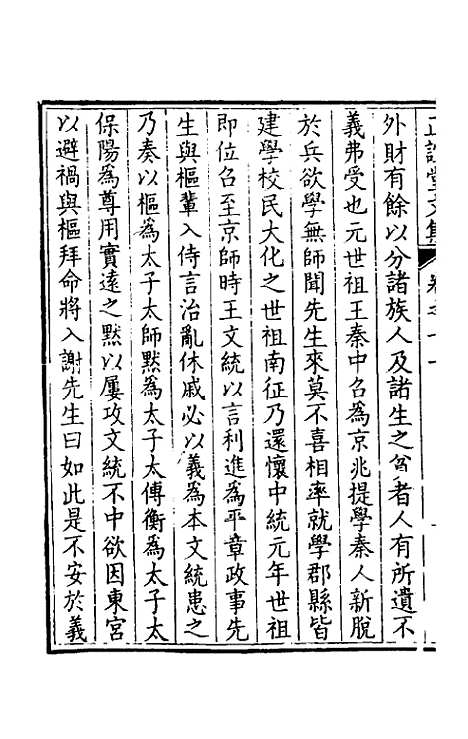 正誼堂文集 卷之十一
外財有餘以分諸族人及諸生之貧者人有所遺不
義弗受也元世祖王秦中召為京兆提學秦人新脫
於兵欲學無師聞先生來莫不喜相率就學郡縣皆
建學校民大化之世祖南征乃還懷中統元年世祖
即位召至京師時王文統以言利進為平章政事先
生與樞輩入侍言治亂休戚必以義為本文統患之
乃奏以樞為太子太師默為太子太傅衡為太子太
保陽為尊用實遠之默以屢攻文統不中欲因東宮
以避禍與樞拜命將入謝先生曰如此是不安於義